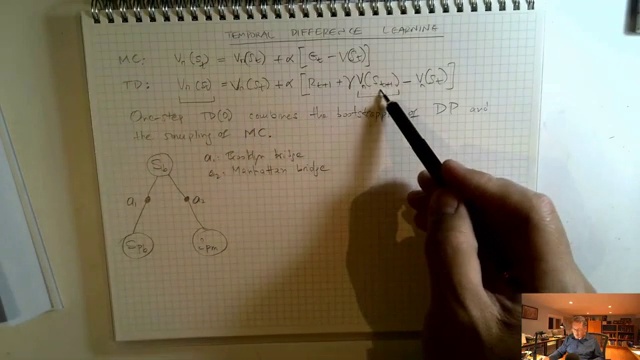 TEMORAL DIFFERENCE LEARNING
MC: Vπ(St) = Vπ(St) + α [Gt − V(St)]
TD: Vπ(St) = Vπ(St) + α [Rt+1 + γ Vπ(St+1) − Vπ(St)]
One-step TD(0) combines the bootstrapping of DP and
the sampling of MC.
a1: Brooklyn bridge
a2: Manhattan bridge
Sb
a1 a2